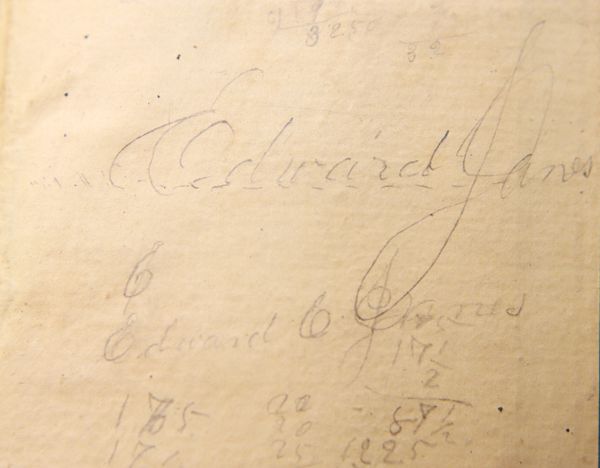 3250
32
Edward Janes
E
Edward E Janes
175
17 1/2
2
175 20 87 1/2
20
17 25 1225